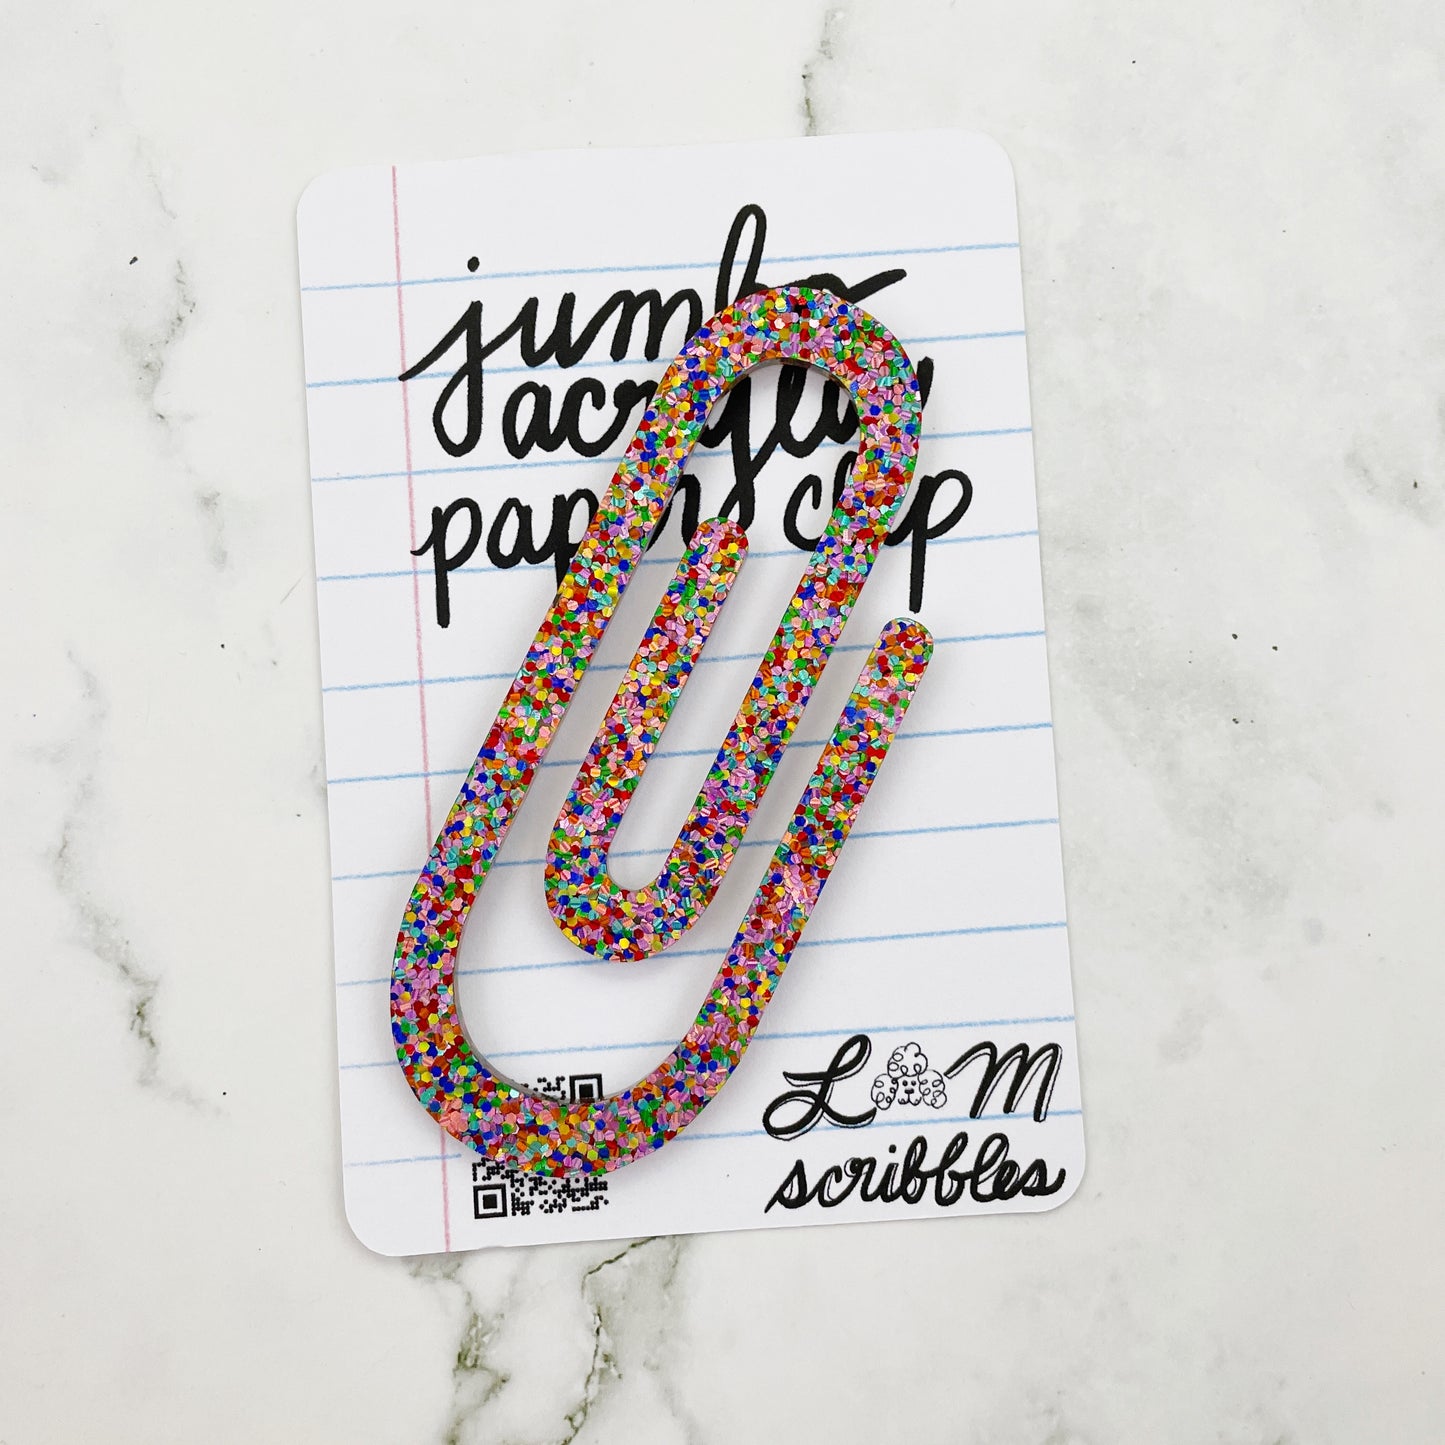 jumbo
acrylic
paper clip
L M
scribbles